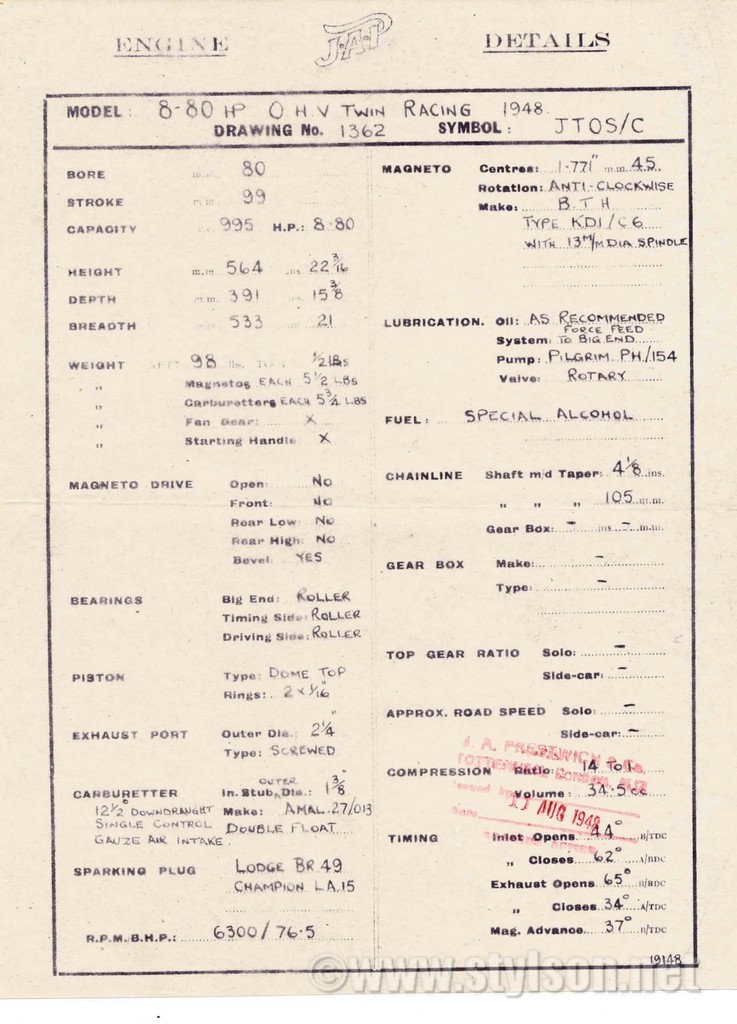 ENGINE J.A.P DETAILS
MODEL: 8-80 HP O H V TWIN RACING 1948.
DRAWING No. 1362 SYMBOL: JTOS/C
BORE m.m. 80
STROKE m.m. 99
CAPACITY 995 H.P.: 8-80
HEIGHT m.m. 564 ins. 22 3/16
DEPTH m.m. 391 ins. 15 3/8
BREADTH 533 21
WEIGHT 98 lbs. 1/2 LBS
" Magnetos EACH 5 1/2 LBS
" Carburetters EACH 5 3/4 LBS
" Fan Gear: X
" Starting Handle X
MAGNETO DRIVE Open: NO
Front: NO
Rear Low: NO
Rear High: NO
Bevel: YES
BEARINGS Big End: ROLLER
Timing Side: ROLLER
Driving Side: ROLLER
PISTON Type: DOME TOP
Rings: 2 x 1/16"
EXHAUST PORT Outer Dia.: 2 1/4"
Type: SCREWED
CARBURETTER In. Stub OUTER Dia.: 1 3/8"
12 1/2° DOWNDRAUGHT Make: AMAL. 27/013
SINGLE CONTROL DOUBLE FLOAT
GAUZE AIR INTAKE.
SPARKING PLUG LODGE BR.49
CHAMPION LA.15
R.P.M. B.H.P.: 6300/76·5
MAGNETO Centres: 1·771" m.m. 45
Rotation: ANTI-CLOCKWISE
Make: B.T H
TYPE KD1/C6
WITH 13 M/M DIA SPINDLE
LUBRICATION. Oil: AS RECOMMENDED
FORCE FEED
System: TO BIG END
Pump: PILGRIM PH/154
Valve: ROTARY
FUEL: SPECIAL ALCOHOL
CHAINLINE Shaft m/d Taper: 4 1/8 ins.
" " " 105 m.m.
Gear Box: - ins - m.m.
GEAR BOX Make: -
Type: -
TOP GEAR RATIO Solo: -
Side-car: -
APPROX. ROAD SPEED Solo: -
Side-car: -
J. A. PRESTWICH & Co.
TOTTENHAM, LONDON, N.17
COMPRESSION Ratio: 14 TO 1
Volume: 34·5 cc
11 AUG 1948
TIMING Inlet Opens 44° B/TDC
" Closes 62° A/BDC
Exhaust Opens 65° B/BDC
" Closes 34° A/TDC
Mag. Advance 37° B/TDC
19148
©www.stylson.net